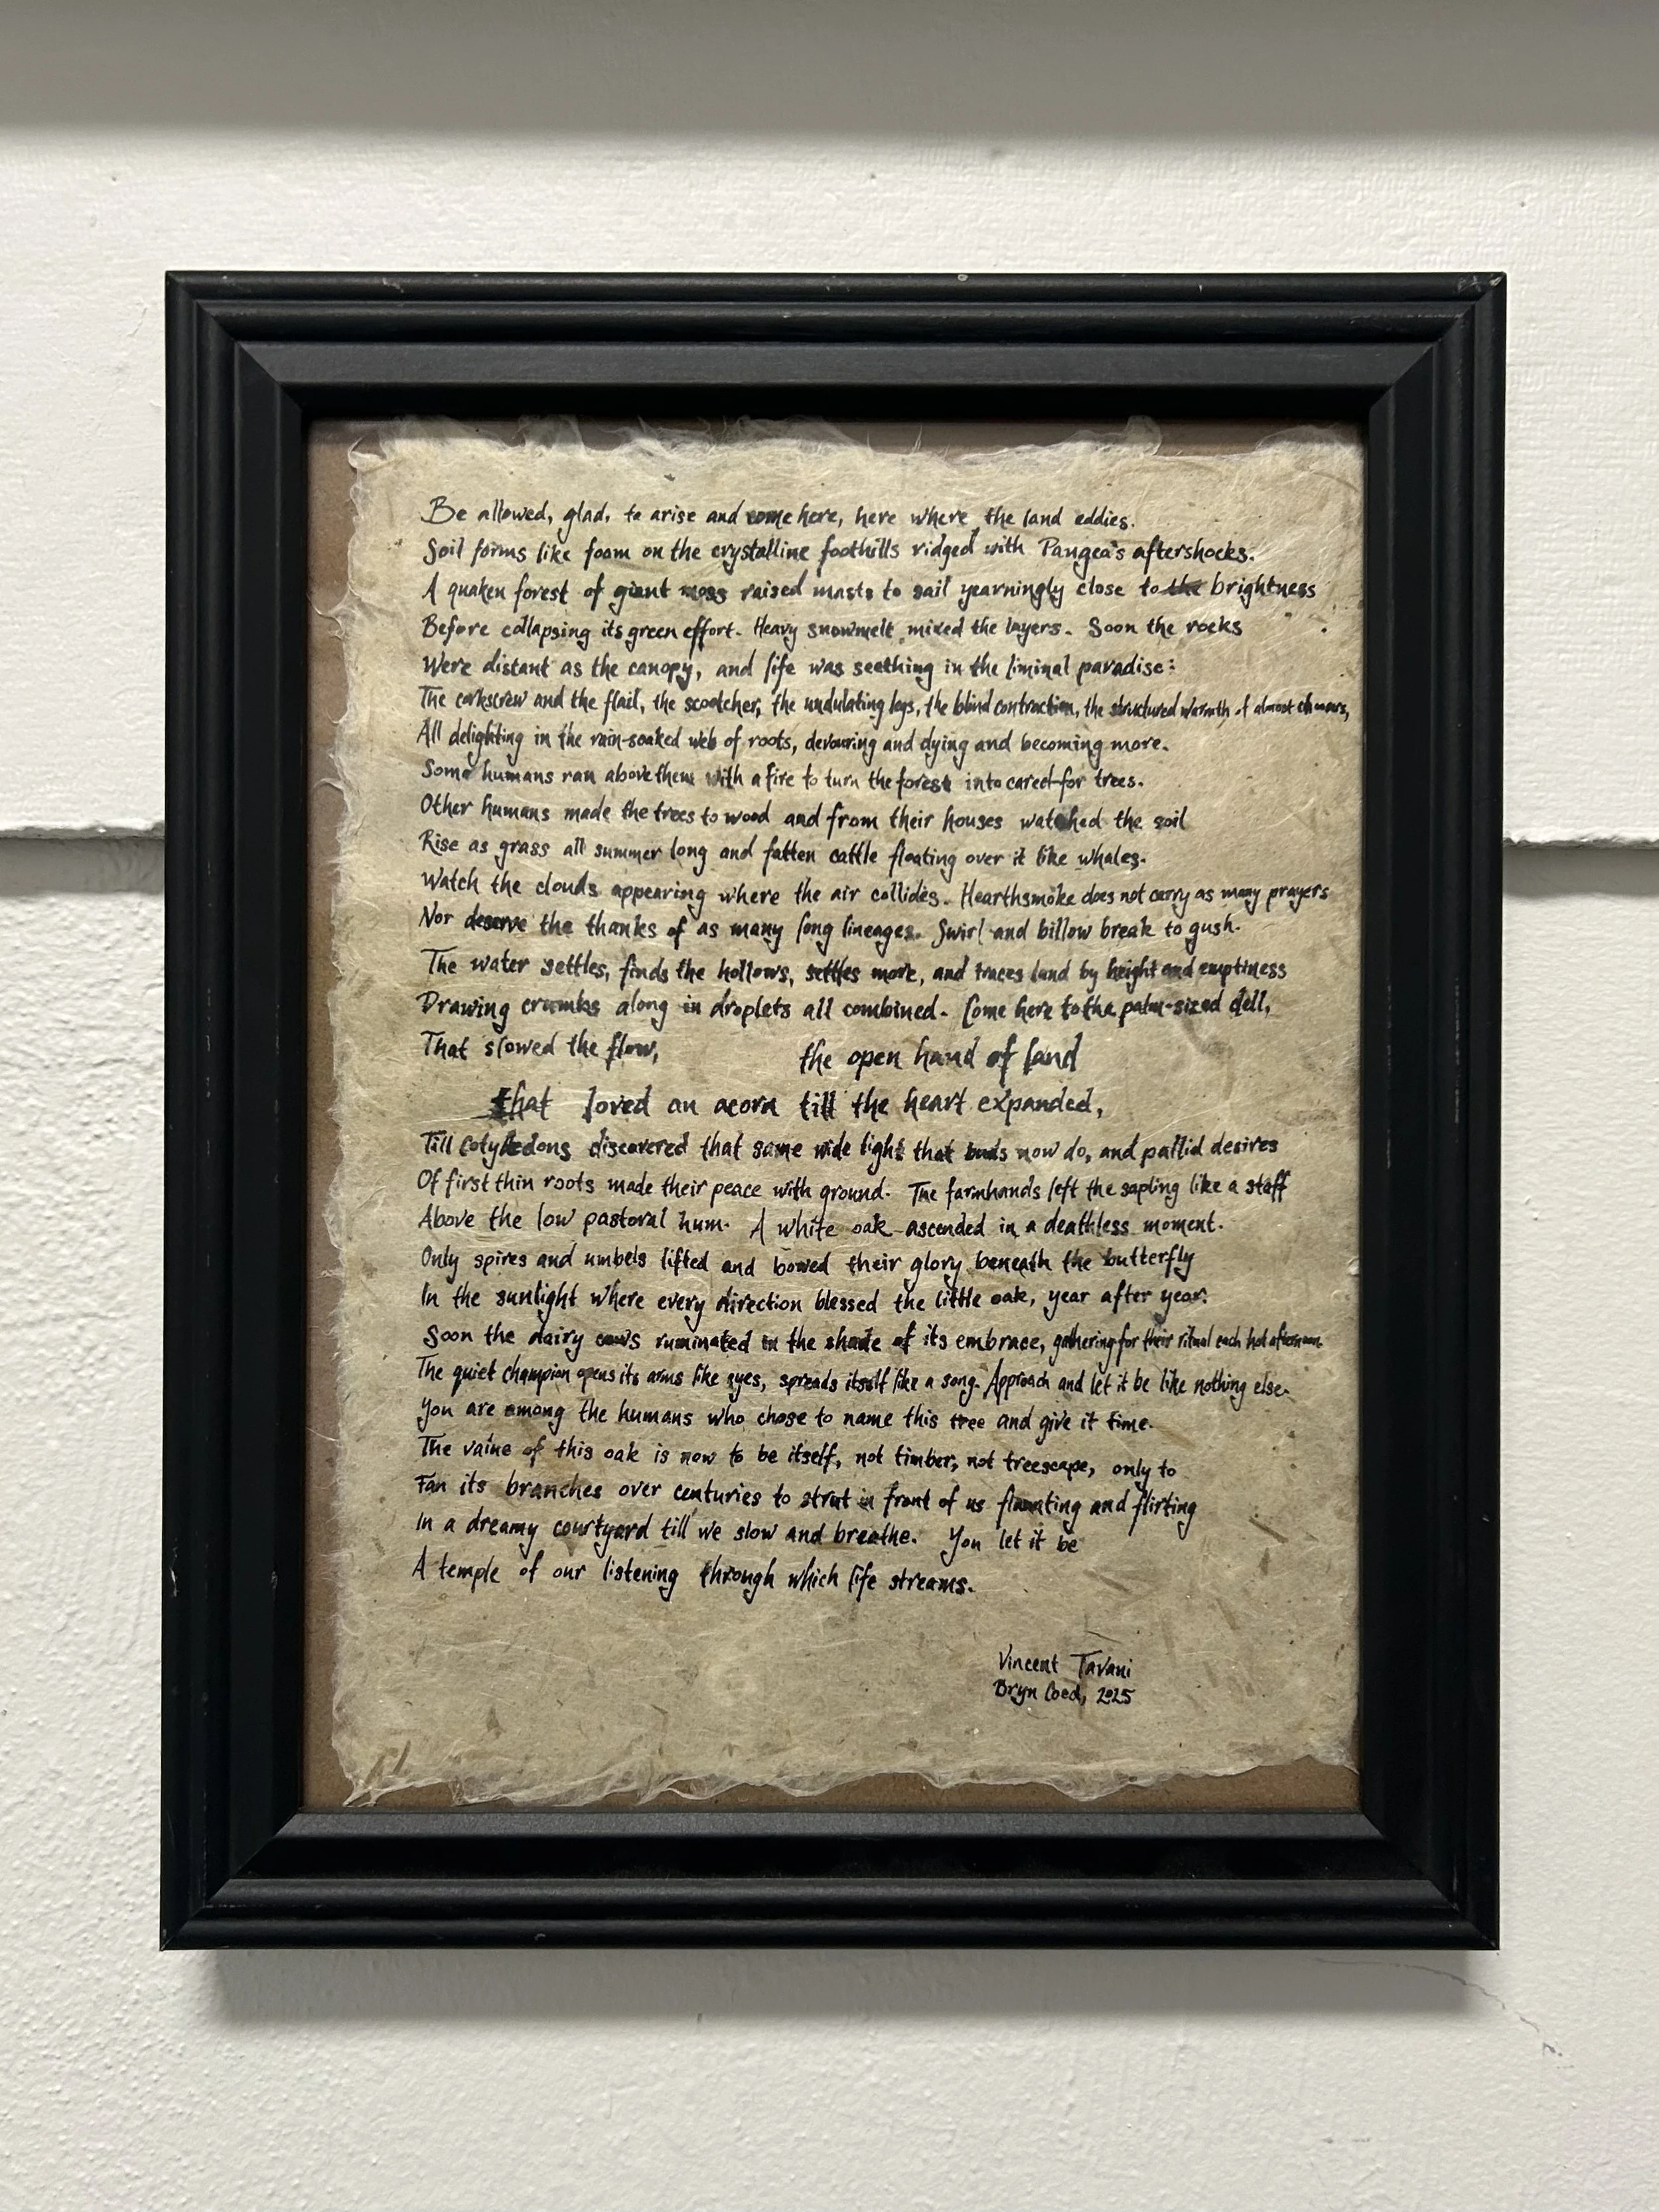 Be allowed, glad, to arise and come here, here where the land eddies.
Soil forms like foam on the crystalline foothills ridged with Pangea's aftershocks.
A quaken forest of giant moss raised masts to sail yearningly close to the brightness
Before collapsing its green effort. Heavy snowmelt mixed the layers. Soon the rocks
Were distant as the canopy, and life was seething in the liminal paradise:
The corkscrew and the flail, the scootcher, the undulating legs, the blind contraction, the structured warmth of almost
All delighting in the rain-soaked web of roots, devouring and dying and becoming more.
Some humans ran above them with a fire to turn the forest into cared-for trees.
Other humans made the trees to wood and from their houses watched the soil
Rise as grass all summer long and fatten cattle floating over it like whales.
Watch the clouds appearing where the air collides. Hearthsmoke does not carry as many prayers
Nor deserve the thanks of as many long lineages. Swirl and billow break to gush.
The water settles, finds the hollows, settles more, and traces land by height and emptiness
Drawing crumbs along in droplets all combined. Come here to the palm-sized dell,
That slowed the flow, the open hand of land
that loved an acorn till the heart expanded,
Till cotyledons discovered that same wide light that buds now do, and pallid desires
Of first thin roots made their peace with ground. The farmhands left the sapling like a staff
Above the low pastoral hum. A white oak ascended in a deathless moment.
Only spires and umbels lifted and bowed their glory beneath the butterfly
In the sunlight where every direction blessed the little oak, year after year.
Soon the dairy cows ruminated in the shade of its embrace, gathering for their ritual each hot afternoon.
The quiet champion opens its arms like eyes, spreads itself like a song. Approach and let it be like nothing else.
You are among the humans who chose to name this tree and give it time.
The value of this oak is now to be itself, not timber, not treescape, only to
Fan its branches over centuries to strut in front of us flaunting and flirting
In a dreamy courtyard till we slow and breathe. You let it be
A temple of our listening through which life streams.
Vincent Tavani
Bryn Coed, 2025